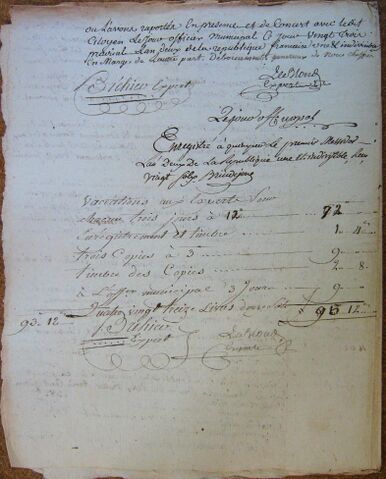 ou Lavons raporté En presence et de Concert avec ledit
Citoyen Lejour officier Municipal Ce jour vingt trois
prairial Lan deux de la republique francaise une & indivisible
En Marge de Lautre part
Expert
Expert
Lejour off.
Enregistré a le premier Messidor
Lan deux de la Republique une et indivisible Reçu
vingt sols
Vacations aux Experts pour
chacun trois jours a 12 72
Enregistrement et timbre 1 4
trois Copies a 3 9
timbre des Copies 2 8
a L'offier municipal 3 Jours 9
93 12 quatre vingt treize Livres douze sols 93 12
Expert
Expert